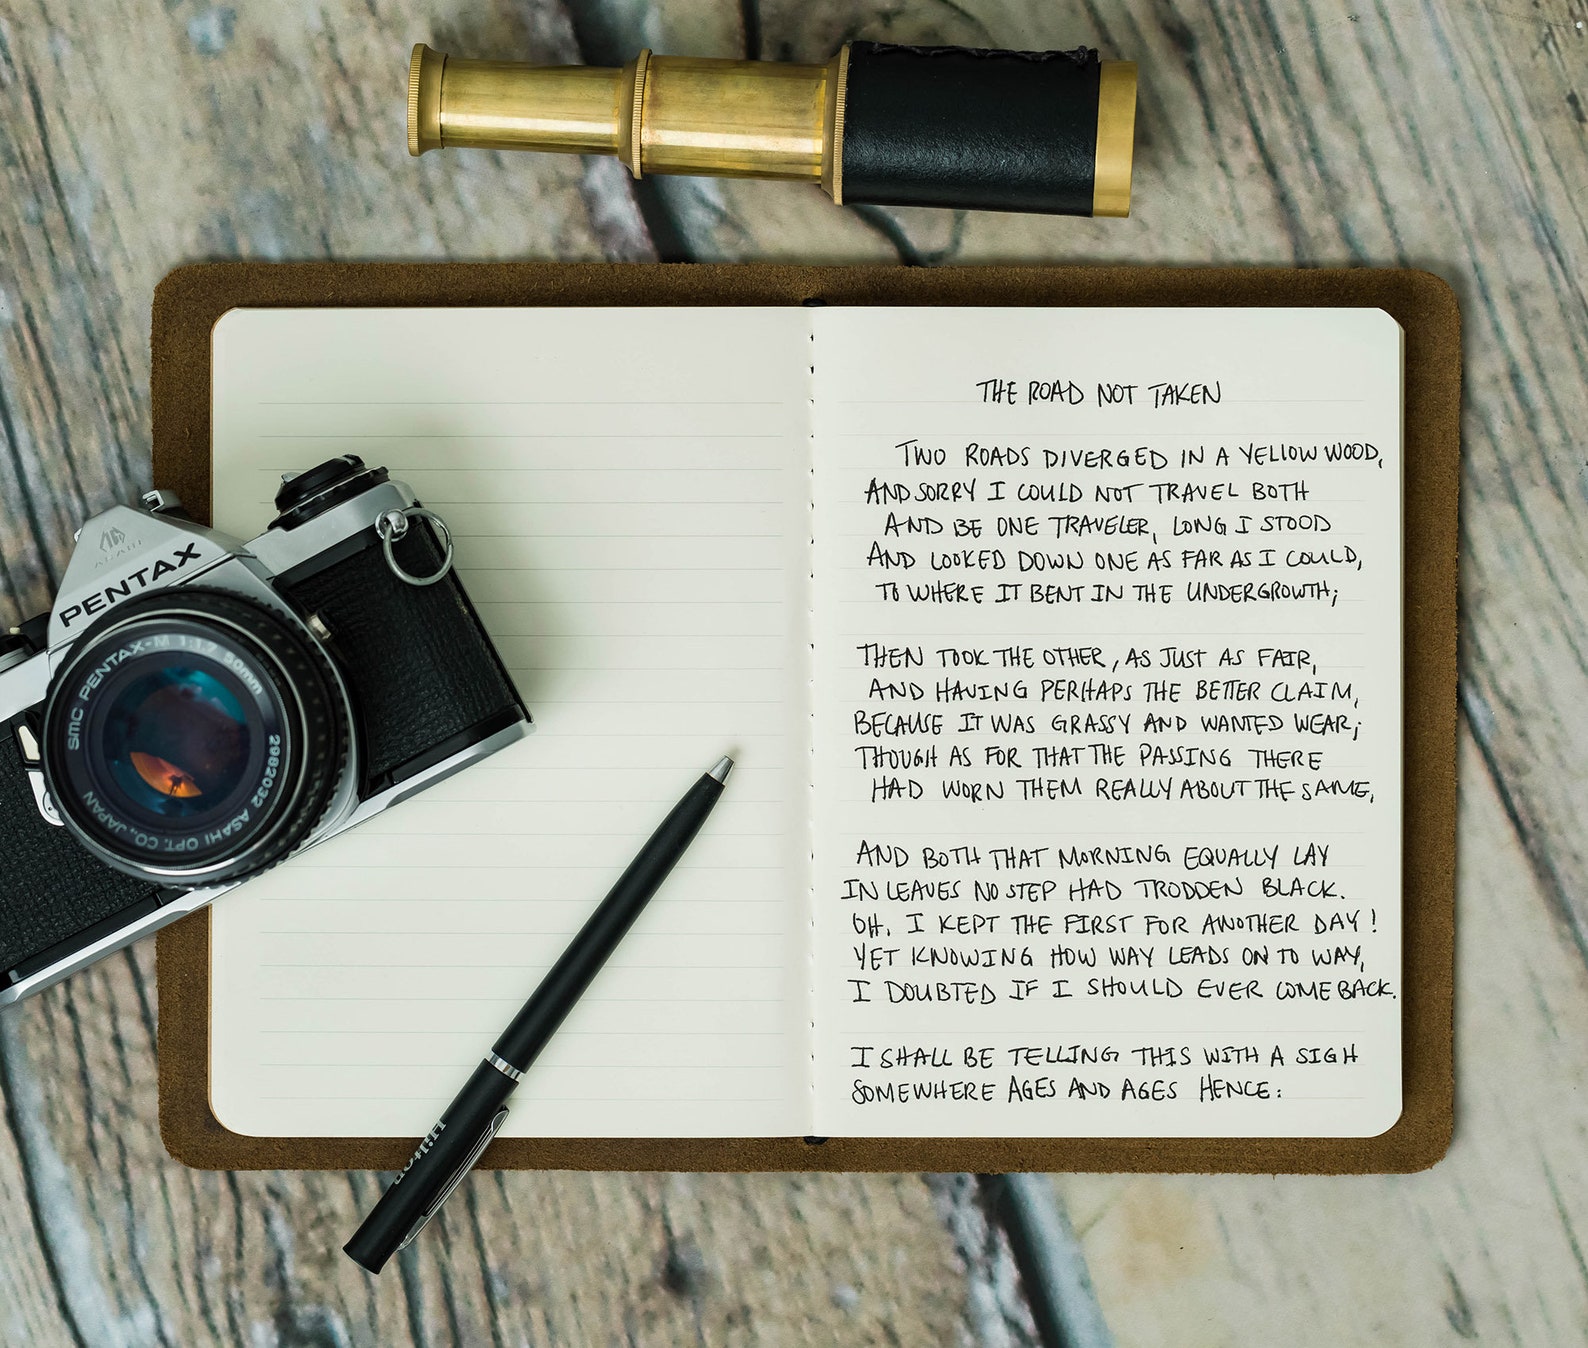 THE ROAD NOT TAKEN
TWO ROADS DIVERGED IN A YELLOW WOOD,
AND SORRY I COULD NOT TRAVEL BOTH
AND BE ONE TRAVELER, LONG I STOOD
AND LOOKED DOWN ONE AS FAR AS I COULD,
TO WHERE IT BENT IN THE UNDERGROWTH;
THEN TOOK THE OTHER, AS JUST AS FAIR,
AND HAVING PERHAPS THE BETTER CLAIM,
BECAUSE IT WAS GRASSY AND WANTED WEAR;
THOUGH AS FOR THAT THE PASSING THERE
HAD WORN THEM REALLY ABOUT THE SAME,
AND BOTH THAT MORNING EQUALLY LAY
IN LEAVES NO STEP HAD TRODDEN BLACK.
OH, I KEPT THE FIRST FOR ANOTHER DAY!
YET KNOWING HOW WAY LEADS ON TO WAY,
I DOUBTED IF I SHOULD EVER COME BACK.
I SHALL BE TELLING THIS WITH A SIGH
SOMEWHERE AGES AND AGES HENCE:
ASAHI
PENTAX
SMC PENTAX-M 1:1.7 50mm
2982032 ASAHI OPT. CO., JAPAN
Hilton